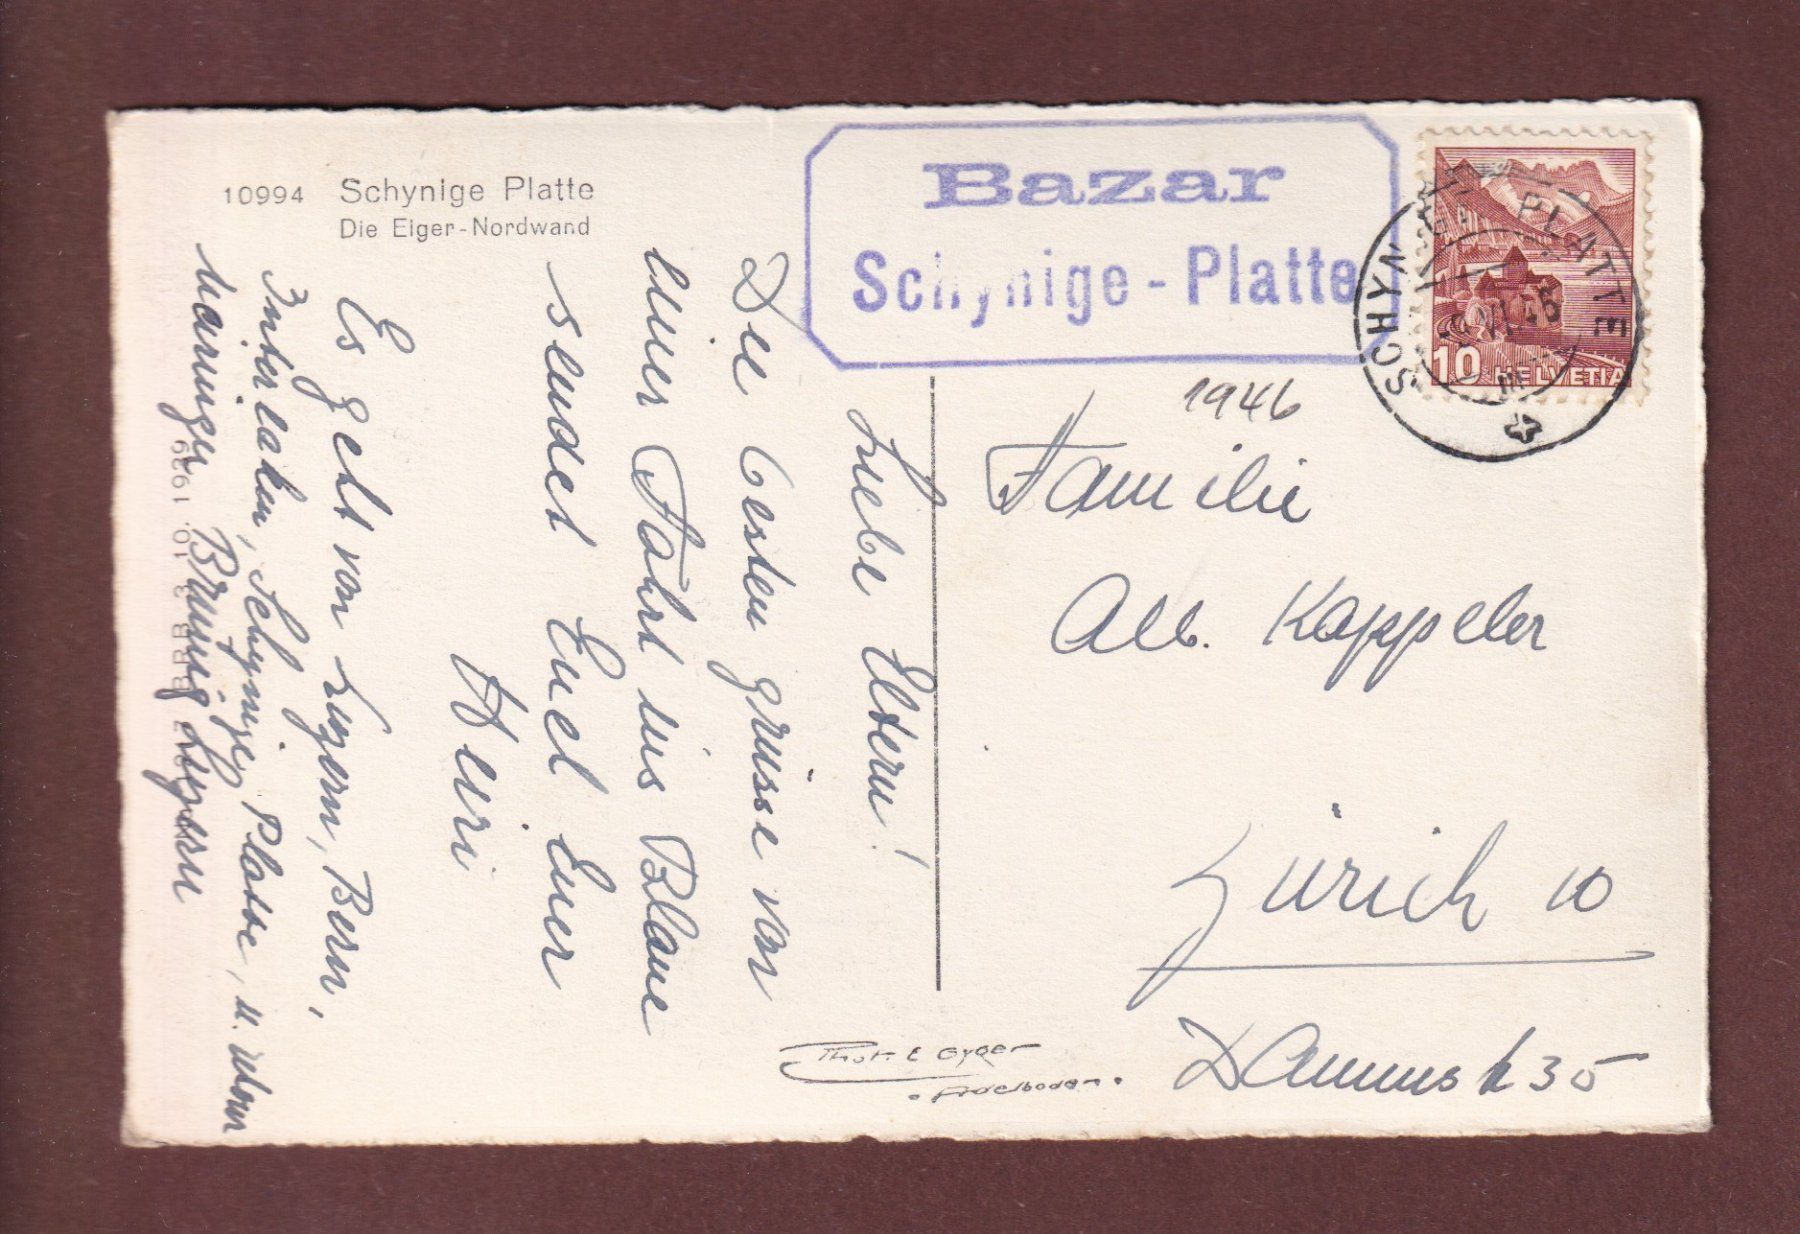 10994 Schynige Platte
Die Eiger-Nordwand
Bazar
Schynige-Platte
SCHYNIGE PLATTE
VI. 46
10 HELVETIA
1946
Liebe Eltern!
Die besten grüsse von
einer Fahrt ins Blaue
sendet Euch Euer
Heiri
Es geht von Luzern, Bern,
Interlaken, Schynige Platte, u. übern
Brünig Luzern
Familie
Alb. Kappeler
Zürich 10
35
Phot. E Gyger
Adelboden.
10. 1939